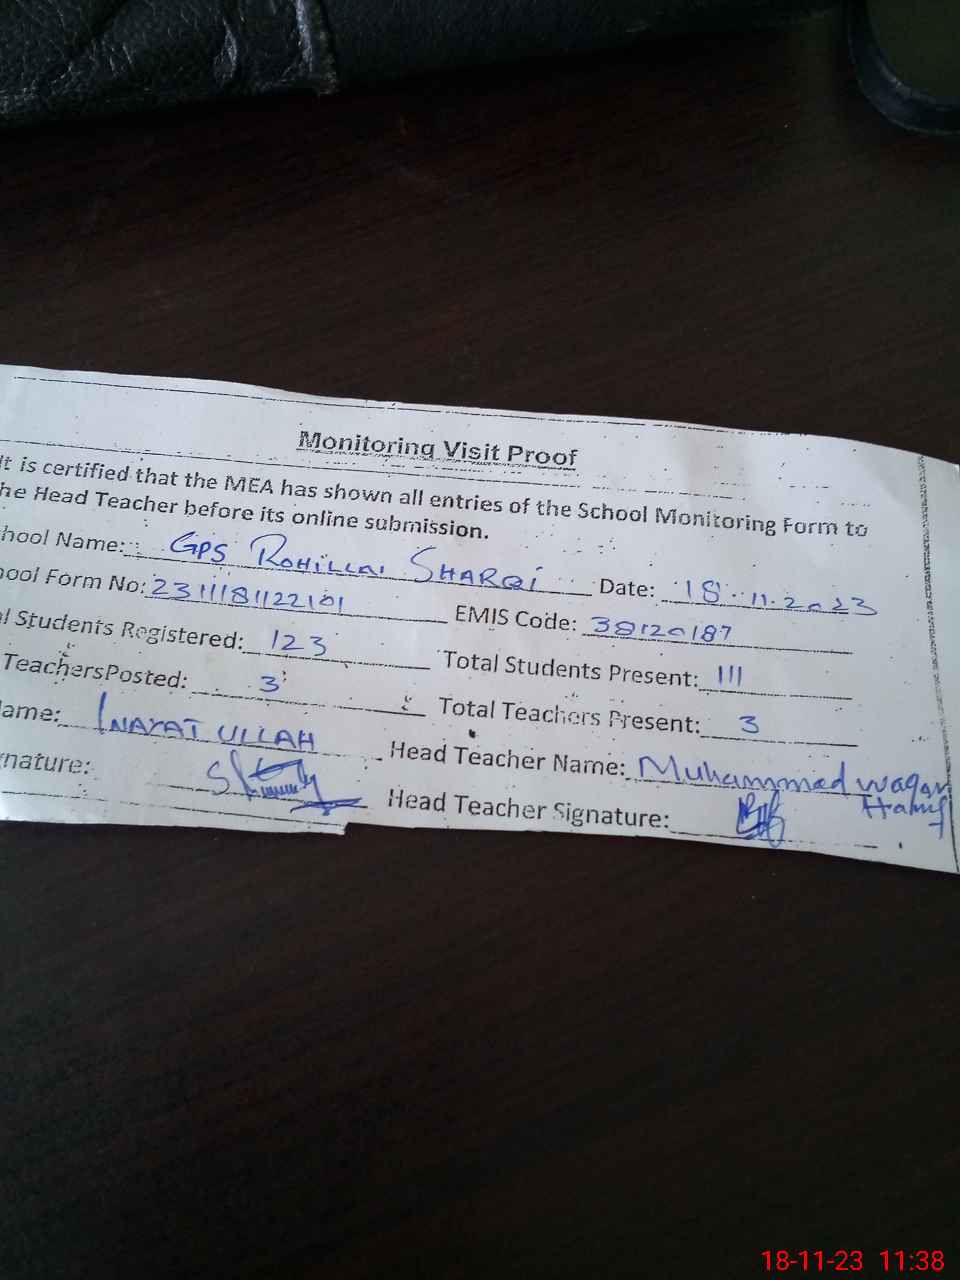 Monitoring Visit Proof
It is certified that the MEA has shown all entries of the School Monitoring Form to
he Head Teacher before its online submission.
hool Name: GPS ROHILLAI SHARQI Date: 18.11.2023
ool Form No: 2311181122101 EMIS Code: 38120187
l Students Registered: 123 Total Students Present: 111
TeachersPosted: 3 Total Teachers Present: 3
ame: INAYAT ULLAH Head Teacher Name: Muhammad Waqar
Hanif
nature: Head Teacher Signature:
18-11-23 11:38